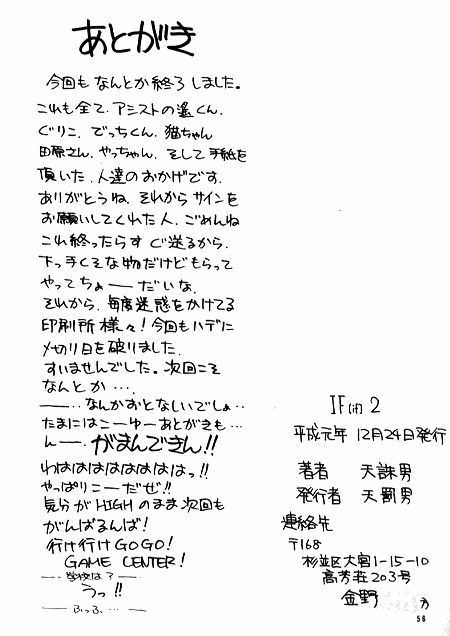 あとがき
今回もなんとか終了しました。
これも全て、アシストの遙くん、
ぐりこ、でっちくん、猫ちゃん
田原さん、やっちゃん、そして手紙を
頂いた、人達のおかげです。
ありがとうね、それからサインを
お願いしてくれた人、ごめんね
これ終ったらすぐ送るから、
下っ手くそな物だけどもらって
やってちょーーだいな、
それから、毎度迷惑をかけてる
印刷所様々!今回もハデに
〆切り日を破りました、
すいませんでした。次回こそ
なんとか…、
——…、なんかおとなしいでしょ…
たまにはこーゆーあとがきも…、
んー、がまんできん!!
わはははははははっ!!
やっぱりこーだぜ!!
気分がHIGHのまま次回も
がんばるんば!
行け行けGOGO!
GAME CENTER!
——、学校は?——
うっ!!
——ふっふ、…——
IF(if)2
平成元年 12月24日発行
著者 天誅男
発行者 天罰男
連絡先
〒168
杉並区大宮1-15-10
高芳荘203号
金野 方
56